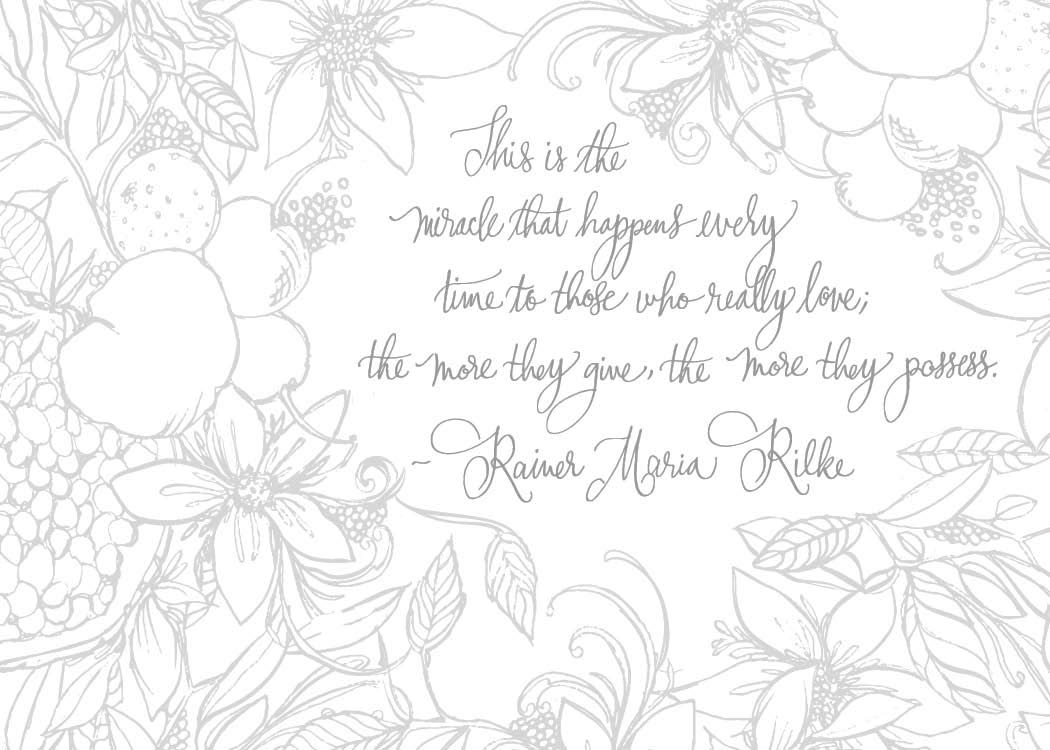 This is the
miracle that happens every
time to those who really love;
the more they give, the more they possess.
~ Rainer Maria Rilke